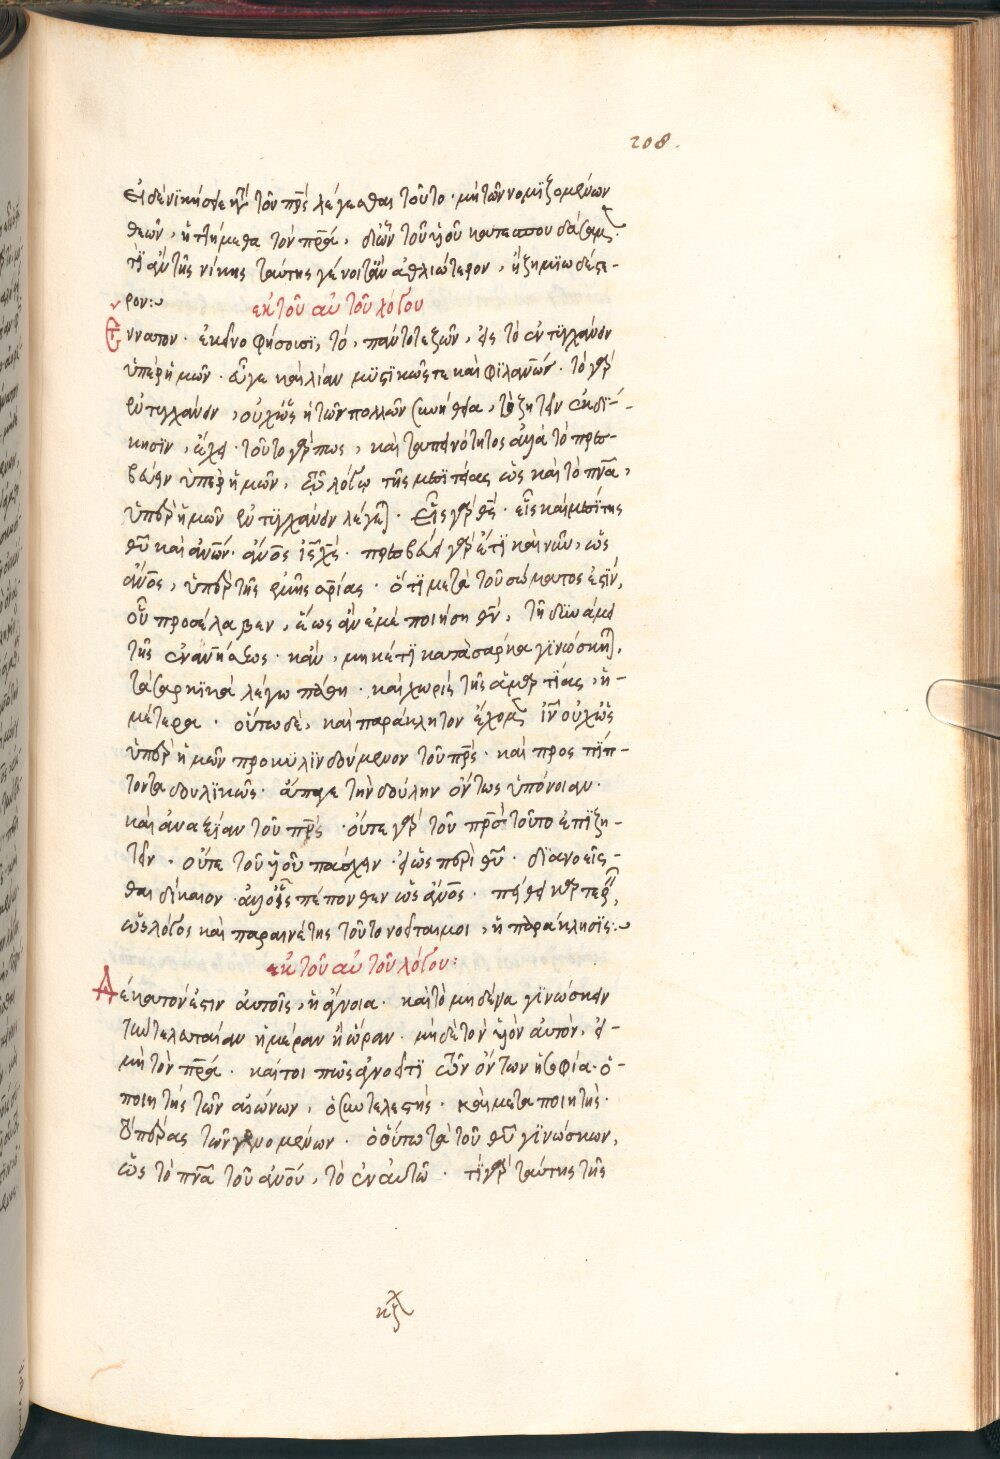 208.
εἰ δὲ νικήσειε τοῦ πρ̅ς λέγεσθαι τοῦτο· μὴ τῶν νομϊζομένων
θεῶν, ἡττήμεθα τὸν πρ̅α, δι' ὧν τοῦ υἱοῦ κατεσπουδάσαμεν·
τί ἂν τῆς νίκης ταύτης γένοιτ' ἂν ἀθλιώτερον, ἢ ζημϊωδέστε-
ρον:
ἐκ τοῦ αὐτοῦ λόγου
Ἔννατον· ἐκεῖνο φήσουσϊ, τὸ, πάντοτε ζῶν, εἰς τὸ ἐντϋγχάνειν
ὑπὲρ ἡμῶν· εὖγε καὶ λίαν μϋστϊκῶς τε καὶ φϊλαν̅ων· τὸ γὰρ
ἐντυγχάνειν, οὐχ ὡς ἡ τῶν πολλῶν συνήθεια, τὸ ζητεῖν ἐκδί-
κησϊν, ἔχει· τοῦτο γάρ πως, καὶ ταπεινότητος ἀλλὰ τὸ πρεσ-
βεύειν ὑπὲρ ἡμῶν, τῷ λόγῳ τῆς μεσϊτείας ὡς καὶ τὸ πν̅α,
ὑπὲρ ἡμῶν ἐντϋγχάνειν λέγεται. εἷς γὰρ θς̅· εἷς καὶ μεσίτης
θυ̅ καὶ αν̅ων· αν̅ος ις̅ χς̅· πρεσβεύει γὰρ ἔτϊ καὶ νῦν, ὡς
αν̅ος, ὑπὲρ τῆς ἐμῆς σρ̅ίας· ὅτι μετὰ τοῦ σώματος ἐστϊν,
οὗ προσέλαβεν, ἕως ἂν ἐμὲ ποιήση θν̅, τῆ δυνάμει
τῆς ἐναν̅ήσεως· κἂν, μηκέτϊ κατὰ σάρκα γϊνώσκηται,
τὰ σαρκϊκὰ λέγω πάθη· καὶ χωρὶς τῆς ἁμαρτίας, ἡ-
μέτερα· οὕτω δὲ, καὶ παράκλητον ἔχομεν ιν̅ οὐχ ὡς
ὑπὲρ ἡμῶν προκυλϊνδούμενον τοῦ πρ̅ς· καὶ προσπϊπ-
τοντα δουλϊκῶς· ἄπαγε τὴν δούλην ὄντως ὑπόνοιαν·
καὶ ἀναξίαν τοῦ πρ̅ς· οὔτε γὰρ τοῦ πρ̅ς τοῦτο ἐπϊζη-
τεῖν· οὔτε τοῦ υἱοῦ πάσχειν· ἢ ὡς περὶ θυ̅· δϊανοεῖσ-
θαι δίκαιον· ἀλλ' οἷς πέπονθεν ὡς αν̅ος· πείθει καρτερεῖν,
ὡς λόγος καὶ παραινέτης τοῦτο νοεῖται μοι, ἡ παράκλησϊς:
ἐκ τοῦ αὐτοῦ λόγου:
Δέκατον ἐστιν αὐτοῖς, ἡ ἄγνοια· καὶ τὸ μηδένα γϊνώσκειν
τὴν τελευταίαν ἡμέραν ἢ ὥραν· μηδὲ τὸν υἱὸν αὐτὸν, εἰ
μὴ τὸν πρ̅α· καίτοι πῶς ἀγνοεῖ τϊ τῶν ὄντων ἡ σοφία· ὁ
ποιητὴς τῶν αἰώνων, ὁ συντελεστὴς· καὶ μεταποιητὴς·
ὁ πέρας τῶν γενομένων· ὁ οὕτω τὰ τοῦ θυ̅ γϊνώσκων,
ὡς τὸ πν̅α τοῦ αν̅ου, τὸ ἐν αὐτῷ· τί γὰρ ταύτης τῆς